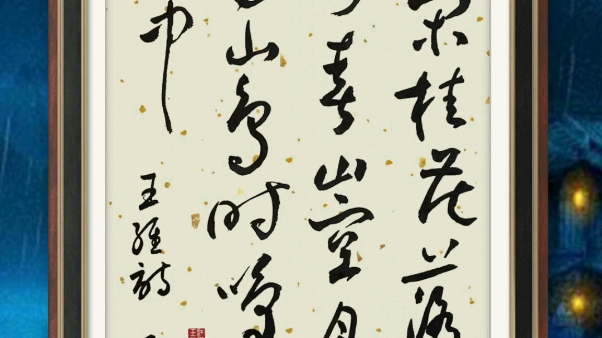 闲桂花落
春山空月
山鸟时鸣
中
王维诗